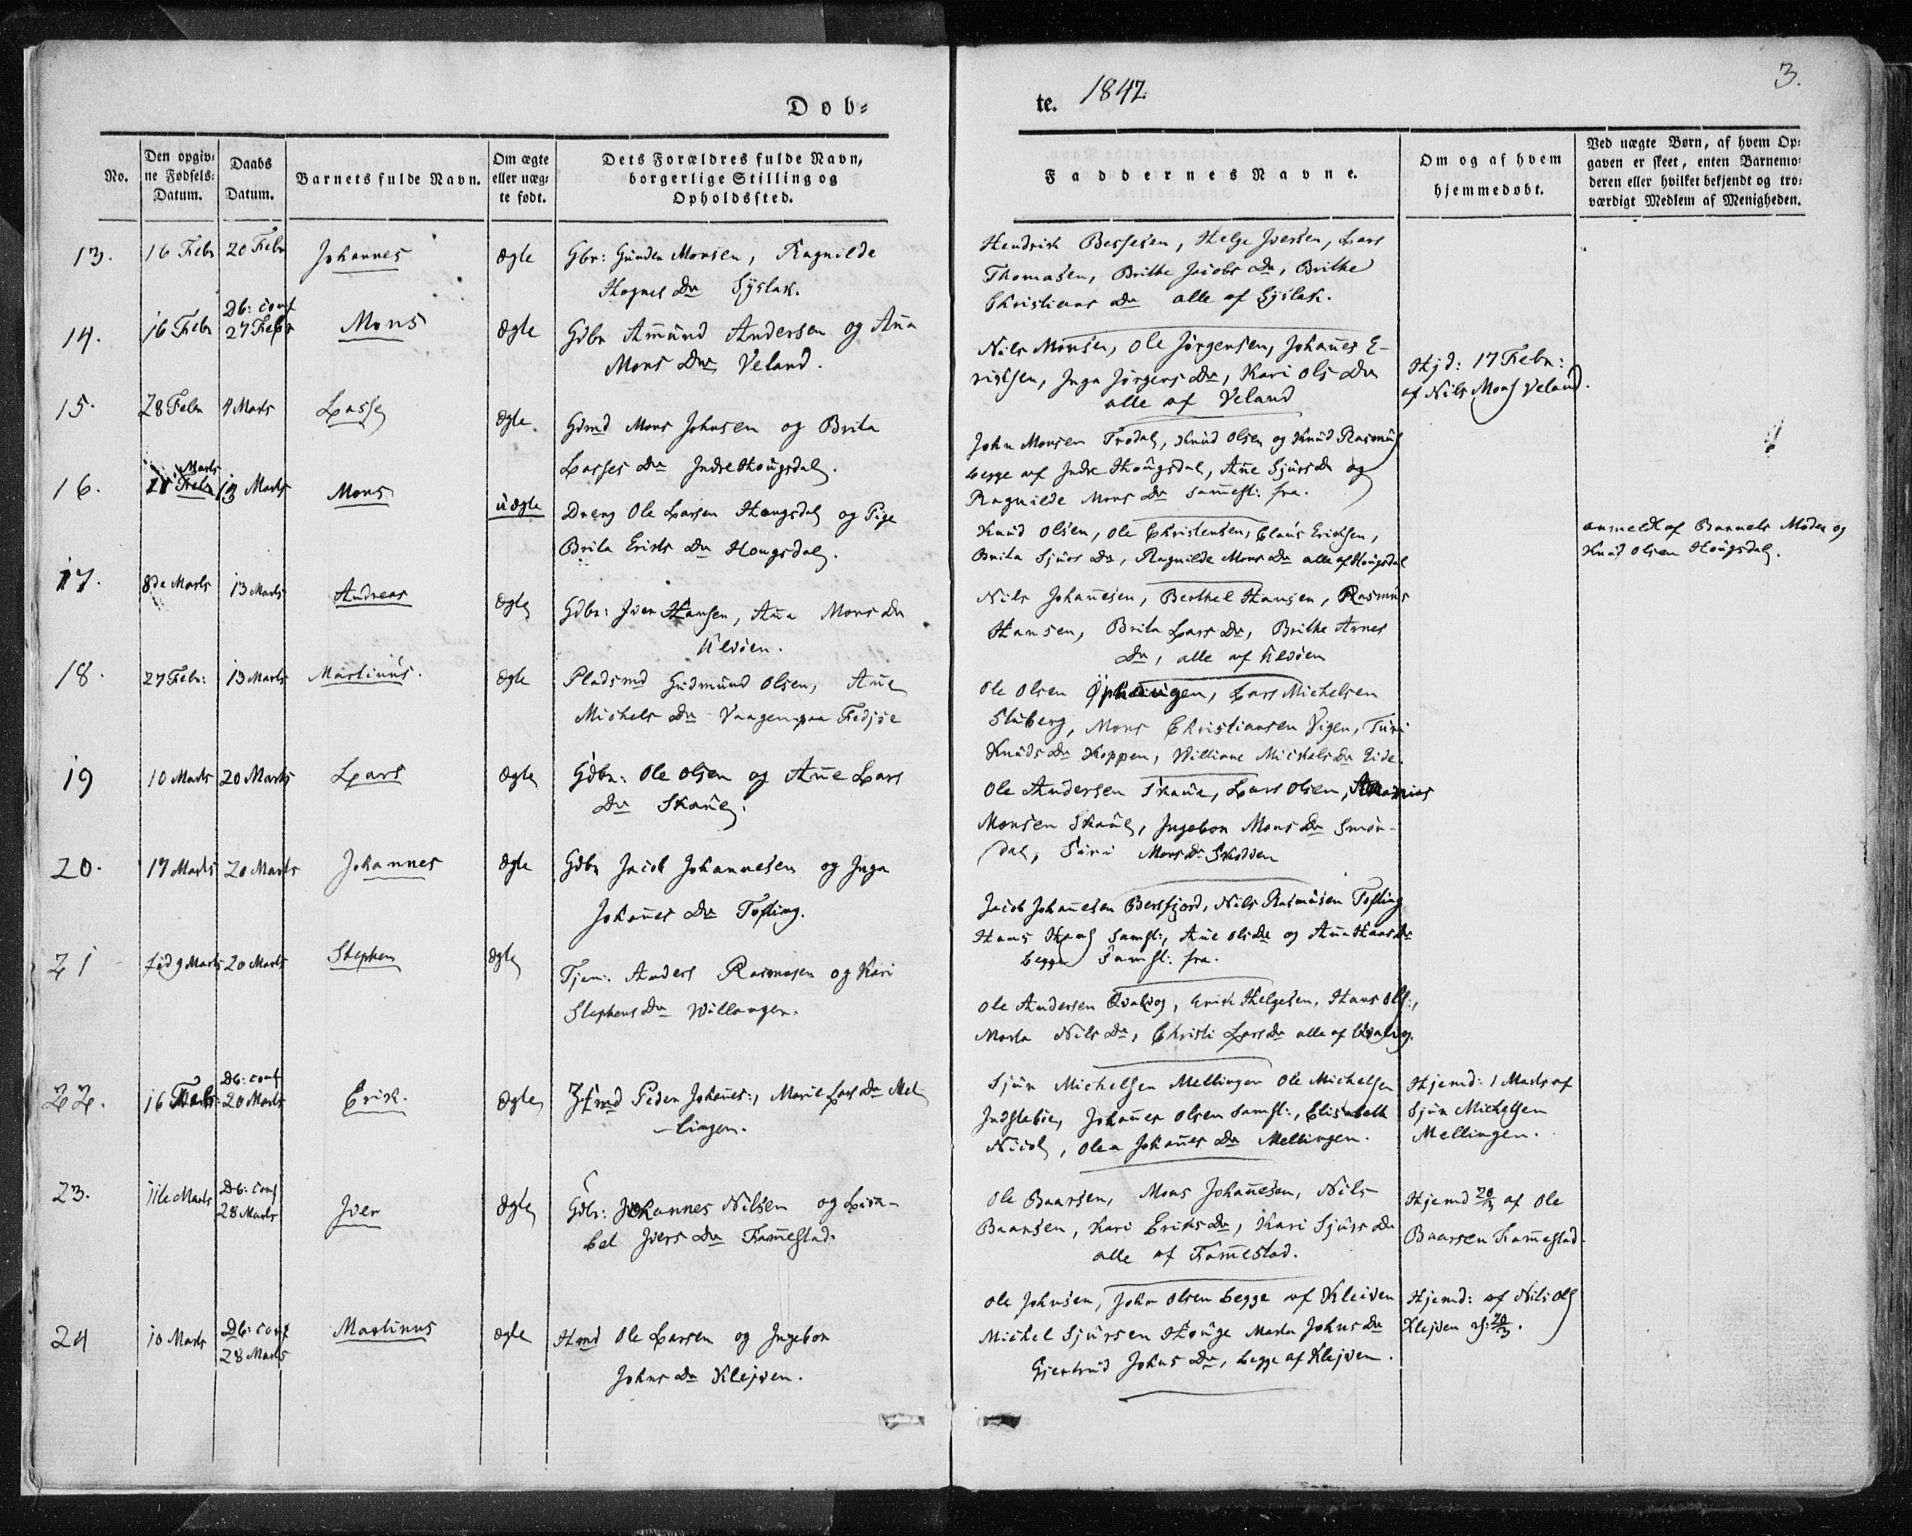 Døb=
te. 1842.
3.
No.
Den opgiv-
ne Fødsels-
Datum.
Daabs
Datum.
Barnets fulde Navn.
Om ægte
eller uæg-
te født.
Dets Forældres fulde Navn,
borgerlige Stilling og
Opholdssted.
Faddernes Navne.
Om og af hvem
hjemmedøbt.
Ved uægte Børn, af hvem Op-
gaven er skeet, enten Barnemo-
deren eller hvilket bekjendt og tro-
værdigt Medlem af Menigheden.
13. 16 Febr 20 Febr Johannes ægte
Gbr: Gunder Monsen, Ragnilde
Hognes Dr Syslak.
Hendrik Bessesen, Helge Iversen, Lars
Thomasen, Brithe Jacobs Dr, Brithe
Christians Dr alle af Syslak.
14. 16 Febr Db: conf
27 Febr Mons ægte
Gdbr Amund Andersen og Ana
Mons Dr Veland.
Nils Monsen, Ole Jørgensen, Johanes E-
riksen, Inga Jørgens Dr, Kari Ols Dr
alle af Veland
Hjd: 17 Febr:
af Nils Mons Veland.
15. 28 Febr 4 Marts Lasse ægte.
Gdmd Mons Johnsen og Brita
Lasses Dr Indre Hougsdal.
John Monsen Trodal, Knud Olsen og Knud Rasmus
begge af Indre Hougsdal, Ane Sjurs Dr og
Ragnilde Mons Dr sammest. fra.
16. 11 Marts 13 Marts Mons uægte
Dreng Ole Larsen Hougsdal og Pige
Brita Eriks Dr Hougsdal.
Knud Olsen, Ole Christensen, Claus Eriksen,
Brita Sjurs Dr, Ragnilde Mons Dr alle af Hougsdal
anmeldt af Barnets Moder og
Knud Olsen Hougsdal.
17. 8de Marts 13 Marts Andreas ægte
Gdbr: Iver Hansen, Ana Mons Dr
Ulvøen.
Nils Johanesen, Berthel Hansen, Rasmus
Hansen, Brita Lars Dr, Brithe Arnes
Dr, alle af Ulvøen
18. 27 Febr: 13 Marts Martinus. ægte
Pladsmd Gudmund Olsen, Ane
Michels Dr Vaagen paa Fedjøe
Ole Olsen Ophaugen, Lars Michelsen
Stuberg, Mons Christiansen Vigen, Turi
Knuds Dr Koppen, Williane Michels Dr Eide.
19 10 Marts 20 Marts Lars ægte
Gdbr: Ole Olsen og Ane Lars
Dr Skaue.
Ole Andersen Skaue, Lars Olsen,
Monsen Skaue, Ingebor Mons Dr Smør-
dal, Siri Mons Dr Skodven
20. 17 Marts 20 Marts Johannes ægte
Gdbr Jacob Johannesen og Inga
Johanes Dr Tofting.
Jacob Johanesen Bersfjord, Nils Rasmusen Tofting
Hans Hans samst:, Ane Ols Dr og Ana Hans Dr
begge samst: fra.
21 fød 9 Marts 20 Marts Stephen ægte
Tjen: Anders Rasmusen og Kari
Stephens Dr Willanger.
Ole Andersen Qvalvog, Erik Helgesen, Hans Ols:,
Marta Nils Dr, Christi Lars Dr alle af Qvalvog.
22. 16 Febr: Db: conf
20 Marts Erik. ægte
Peder Johanes:, Marie Lars Dr Mel
-lingen.
Sjur Michelsen Mellingen Ole Michelsen
Indstebøe, Johanes Olsen samst:, Elisabeth
Nicol, Olea Johanes Dr Mellingen.
Hjemd: 1 Marts af
Sjur Michelsen
Mellingen.
23. 11te Marts Db: conf
28 Marts Iver ægte
Gdbr: Johannes Nilsen og Lisa-
bet Ivers Dr Fammestad.
Ole Baarsen, Mons Johanesen, Nils
Baarsen, Kari Eriks Dr, Kari Sjurs Dr
alle af Fammestad.
Hjemd 20/3 af Ole
Baarsen Fammestad.
24 10 Marts Db: conf
28 Marts Martinus ægte
Hmd Ole Larsen og Ingebor
Johns Dr Klejven.
Ole Johnsen, John Olsen begge af Kleiven
Michel Sjursen Houge Marta Johns Dr
Gjertrud Johns Dr, begge af Klejven.
Hjemd: af Nils Ols
Klejven d: 20/3.